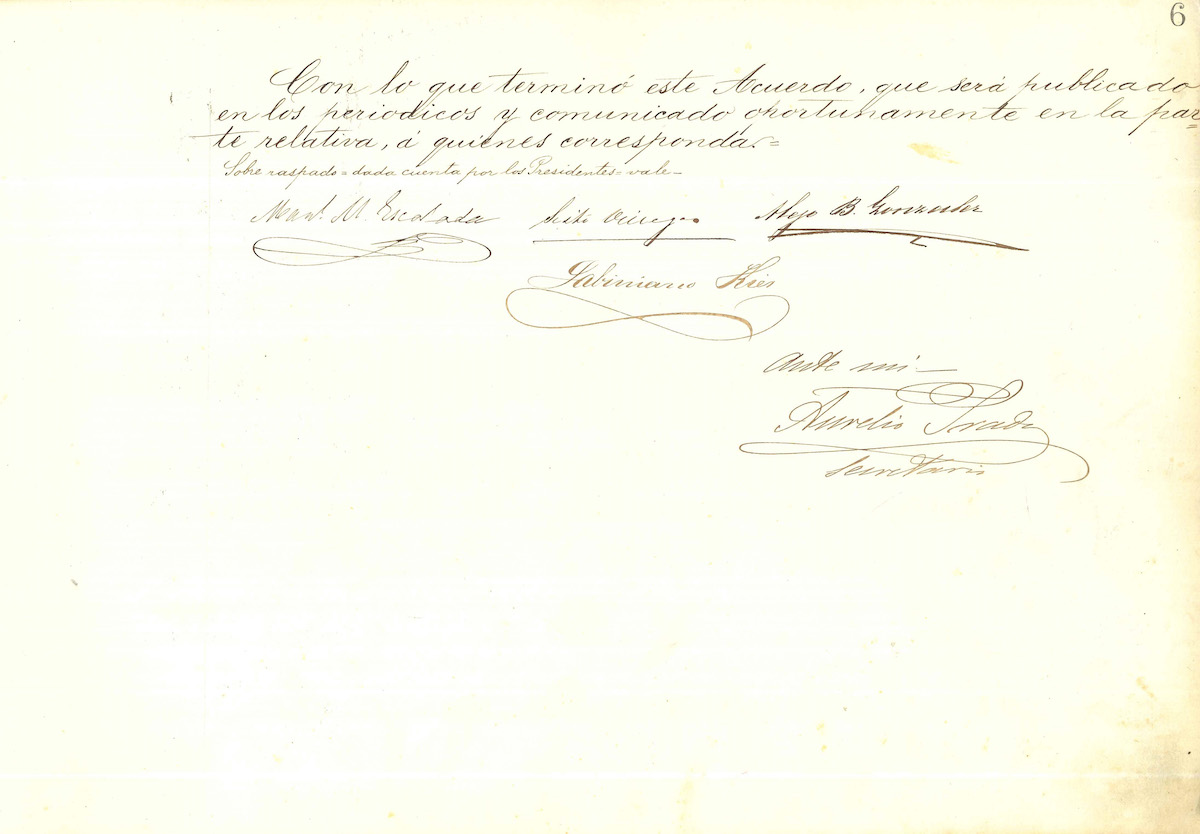 6
Con lo que terminó este Acuerdo, que será publicado
en los periodicos y comunicado oportunamente en la par-
te relativa, á quienes corresponda.=
Sobre raspado = dada cuenta por los Presidentes = vale—
Manl. M. Escalada Alejo B. Gonzalez
Sabiniano Kier
Ante mi—
Aurelio Prado
Secretario